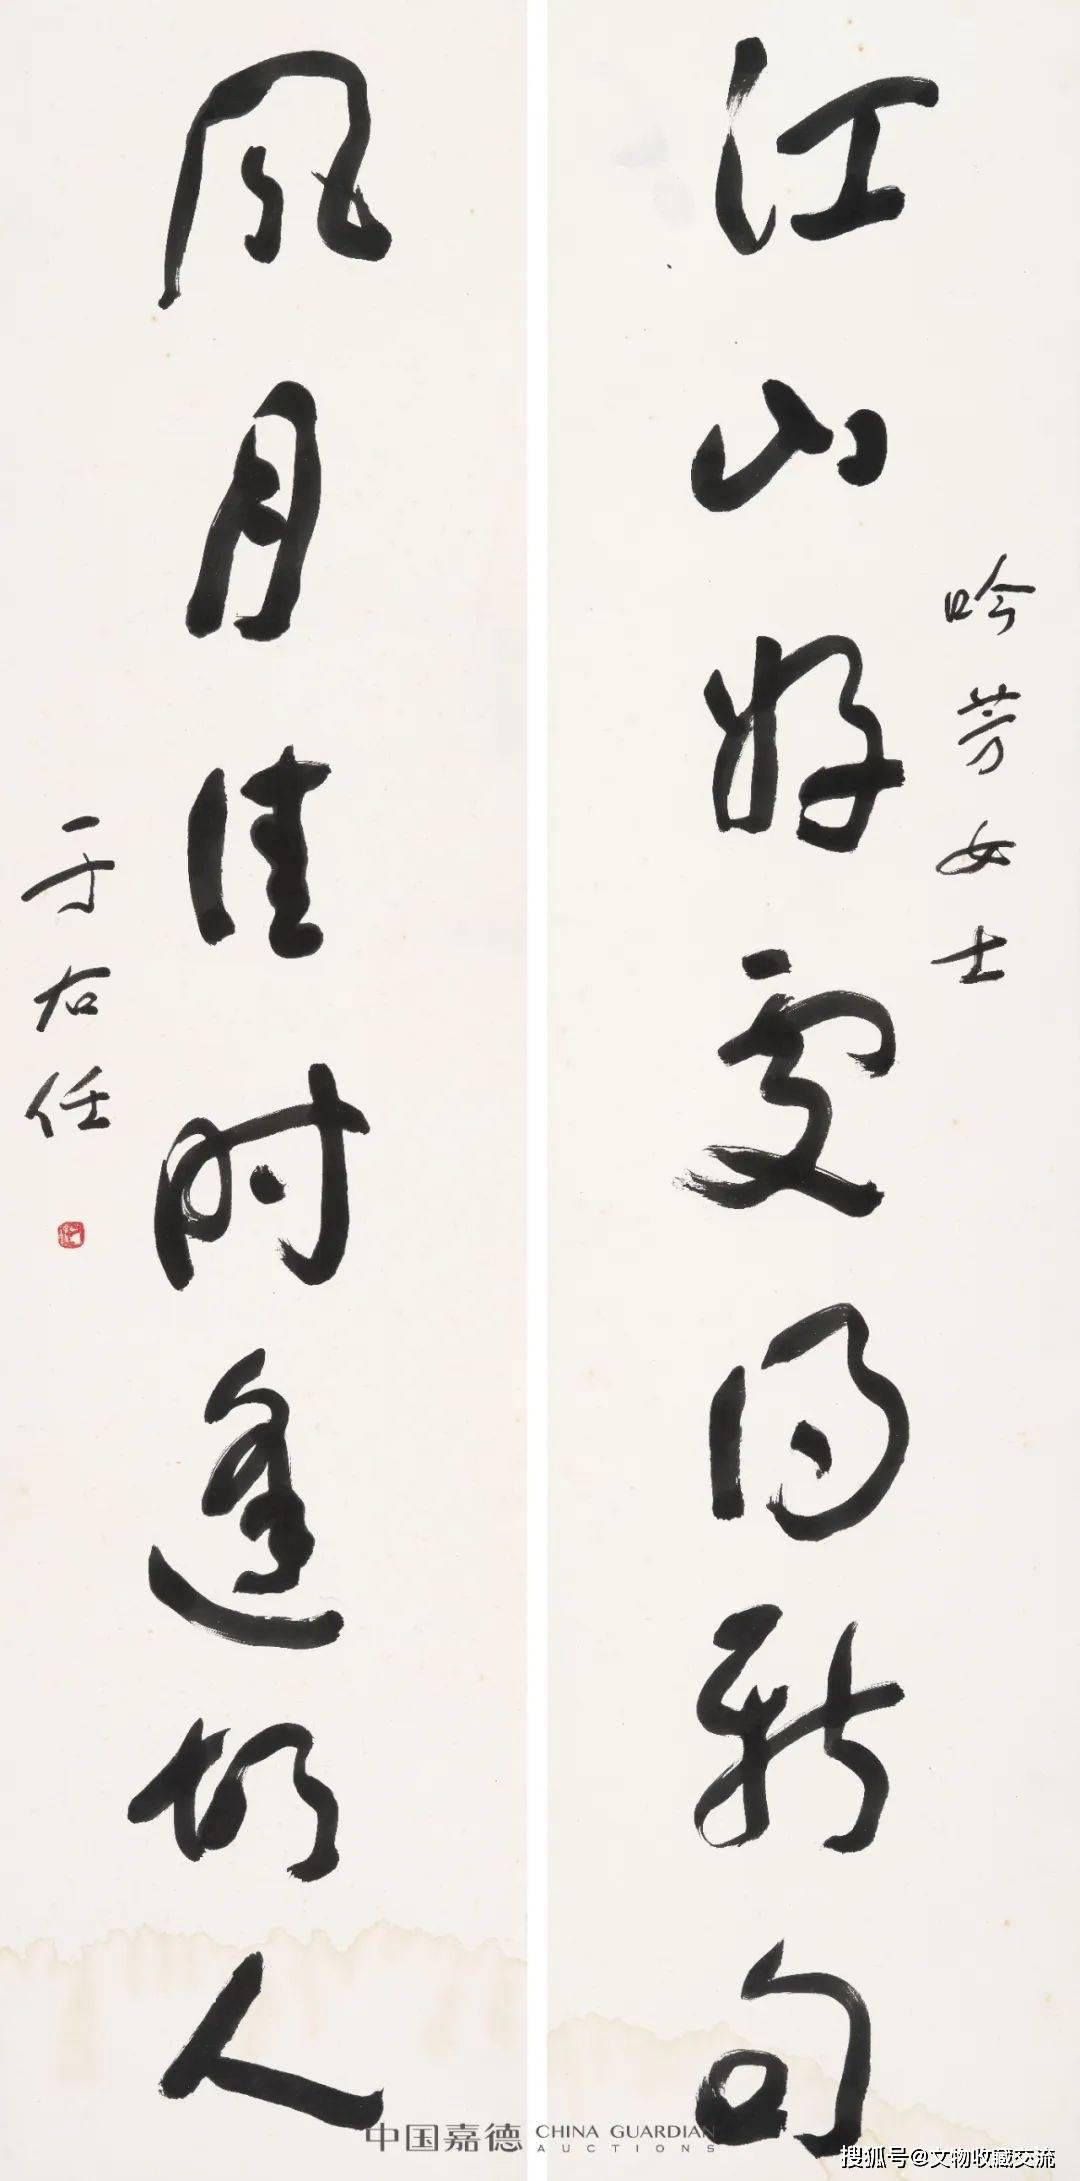 吟芳女士
江山好处得新句
风月佳时逢故人
于右任
中国嘉德 CHINA GUARDIAN AUCTIONS
搜狐号@文物收藏交流